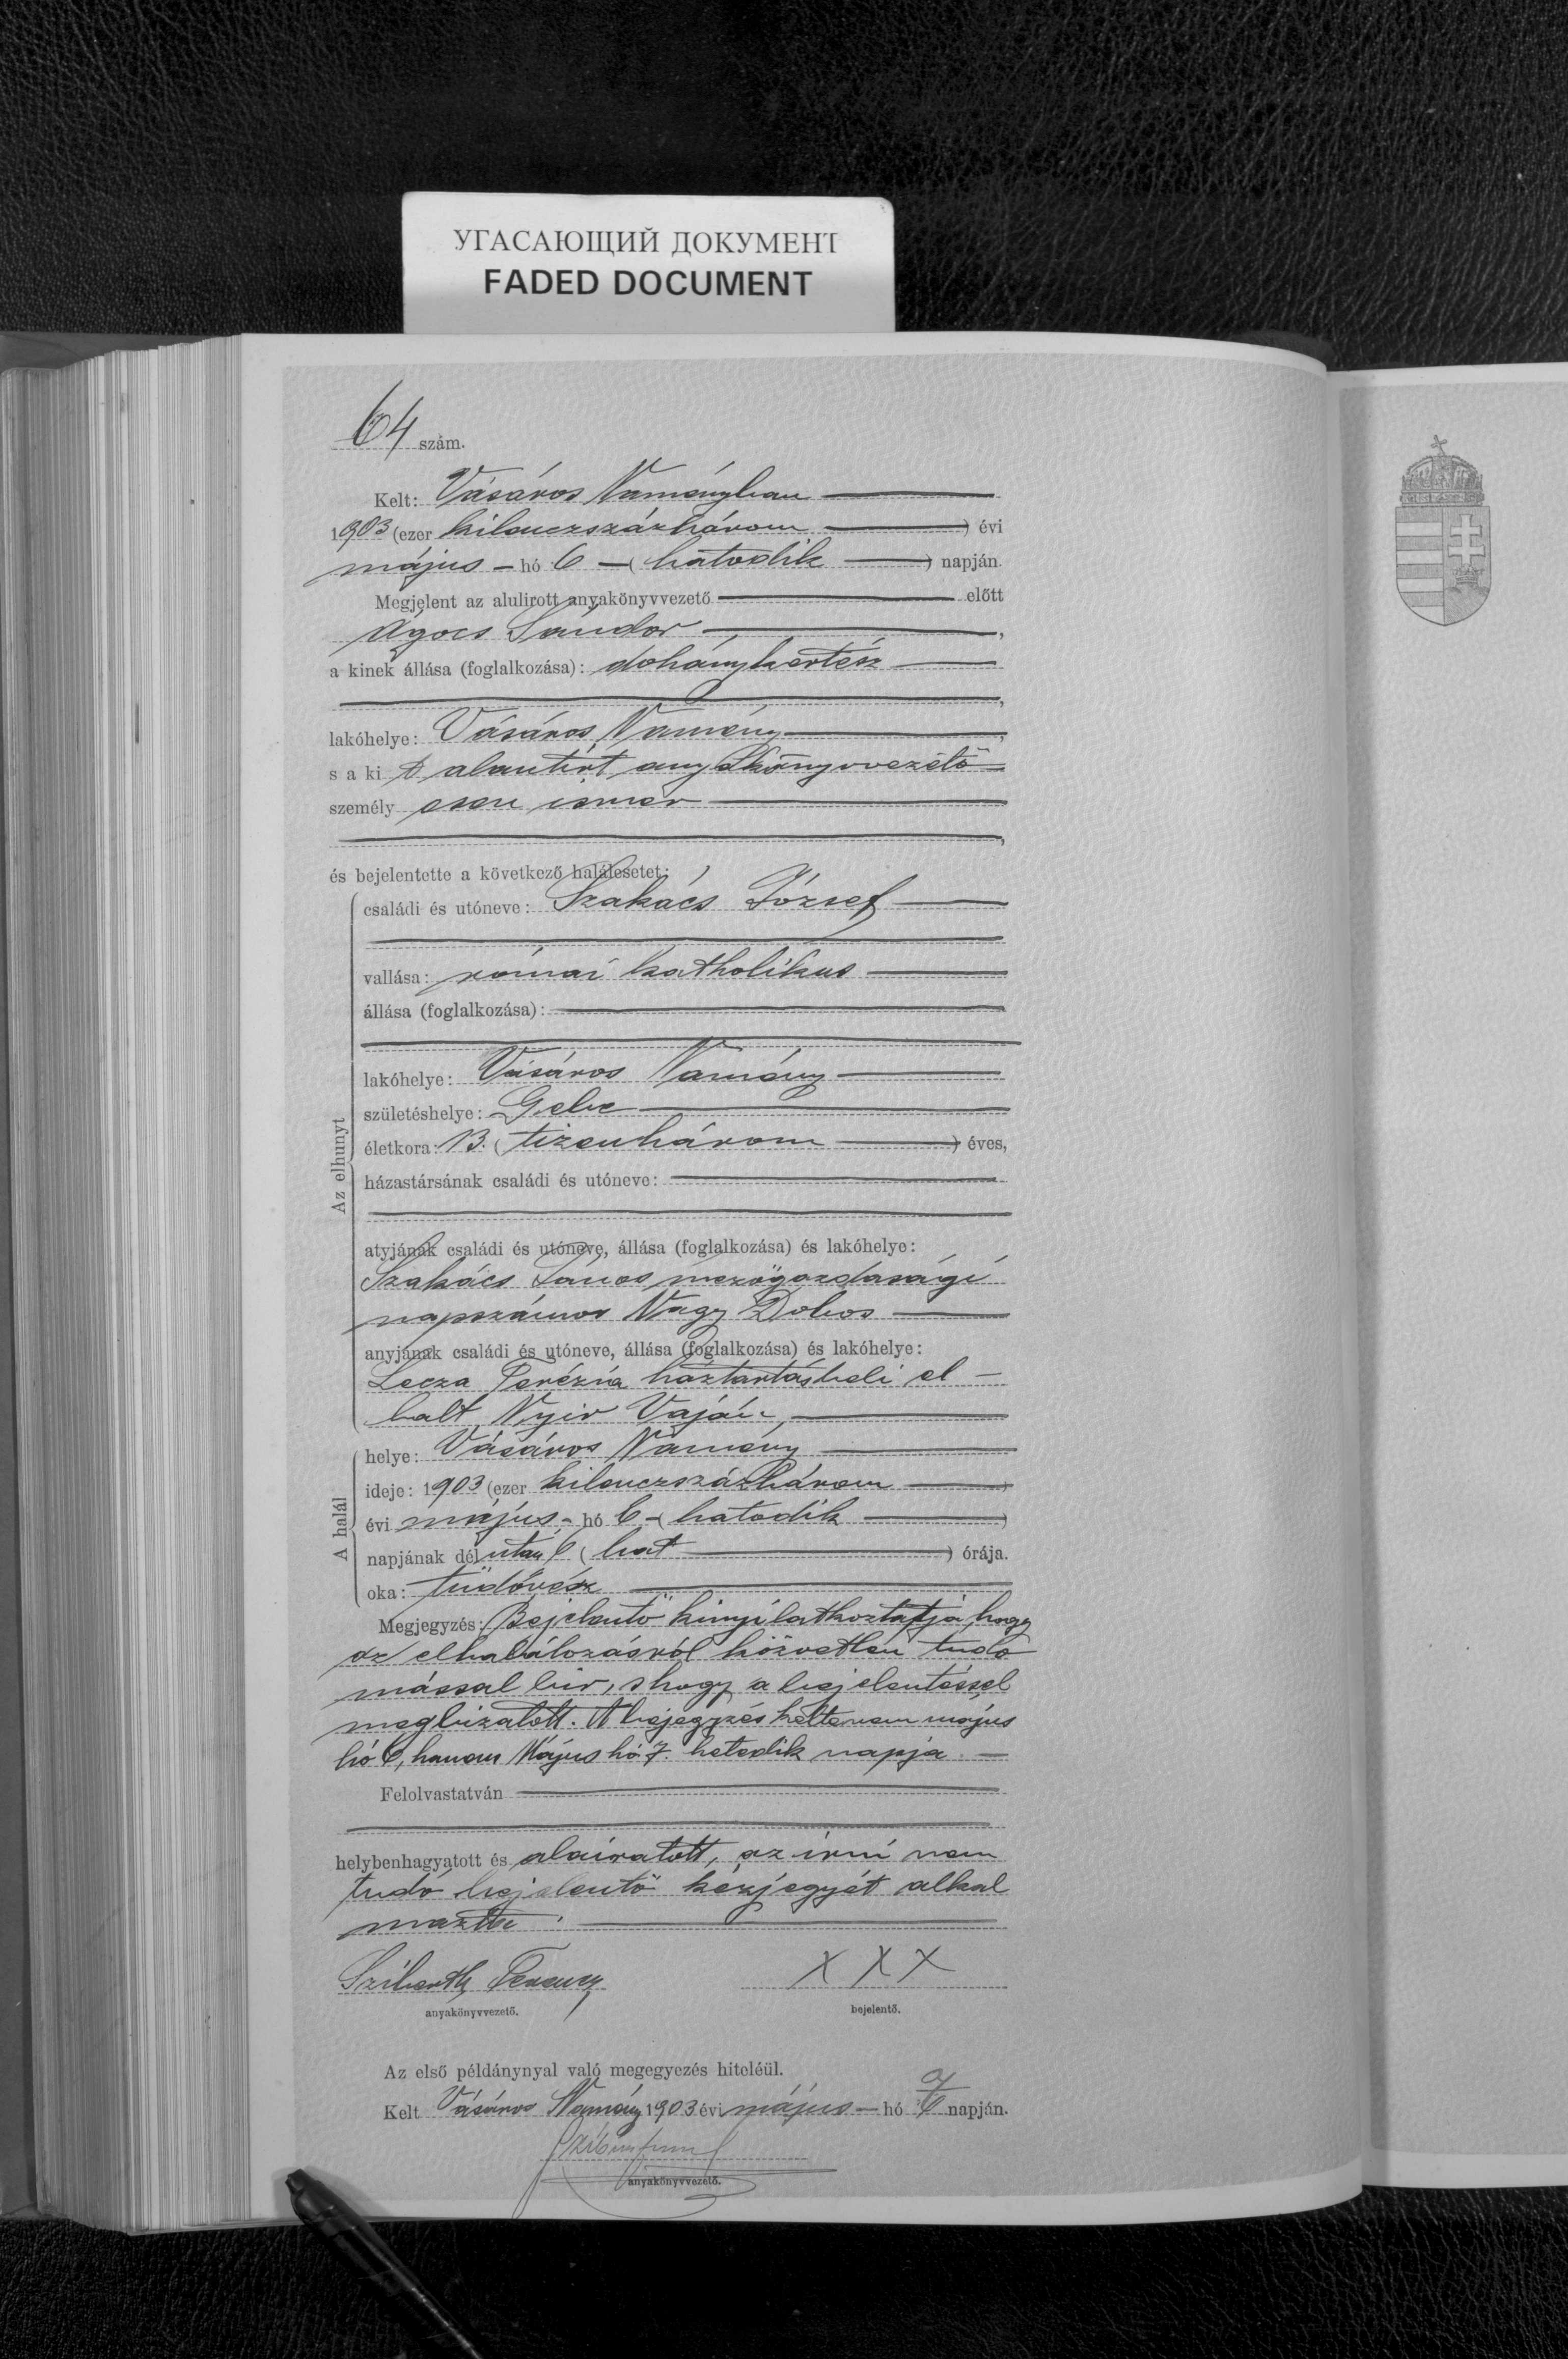 УГАСАЮЩИЙ ДОКУМЕНТ
FADED DOCUMENT
64 szám.
Kelt: Vásáros Naményban
1903 (ezer kilenczszázhárom ) évi
május – hó 6 – ( hatodik ) napján.
Megjelent az alulirott anyakönyvvezető előtt
Agocs Sándor ,
a kinek állása (foglalkozása): dohánykertész
,
lakóhelye: Vásáros Namény ,
s a ki t alantirt anyakönyvvezető
személy esen ismer
,
és bejelentette a következő halálesetet:
Az elhunyt
családi és utóneve: Szakács József
vallása: római katholikus
állása (foglalkozása):
lakóhelye: Vásáros Namény
születéshelye: Gebe
életkora: 13. ( tizenhárom ) éves,
házastársának családi és utóneve:
atyjának családi és utóneve, állása (foglalkozása) és lakóhelye:
Szakács János mezőgazdasági
napszámos Nagy Dobos
anyjának családi és utóneve, állása (foglalkozása) és lakóhelye:
Lecza Terézia háztartásbeli el –
halt Nyir Vaján,
A halál
helye: Vásáros Namény
ideje: 1903 (ezer kilenczszázhárom )
évi május – hó 6 – ( hatodik )
napjának dél után 6 ( hat ) órája.
oka: tüdővész
Megjegyzés: Bejelentő kinyilatkoztatja, hogy
az elhalálozásról közvetlen tudo
mással bir, s hogy a bejelentéssel
megbizatott. A bejegyzés kelte nem május
hó 6, hanem Május hó 7. hetedik napja. –
Felolvastatván
helybenhagyatott és aláiratott, az irni nem
tudó bejelentő kézjegyét alkal
mazta.
Sziberth Ferencz X X X
anyakönyvvezető. bejelentő.
Az első példánynyal való megegyezés hiteléül.
7
Kelt Vásáros Namény 1903 évi május – hó 6 napján.
anyakönyvvezető.